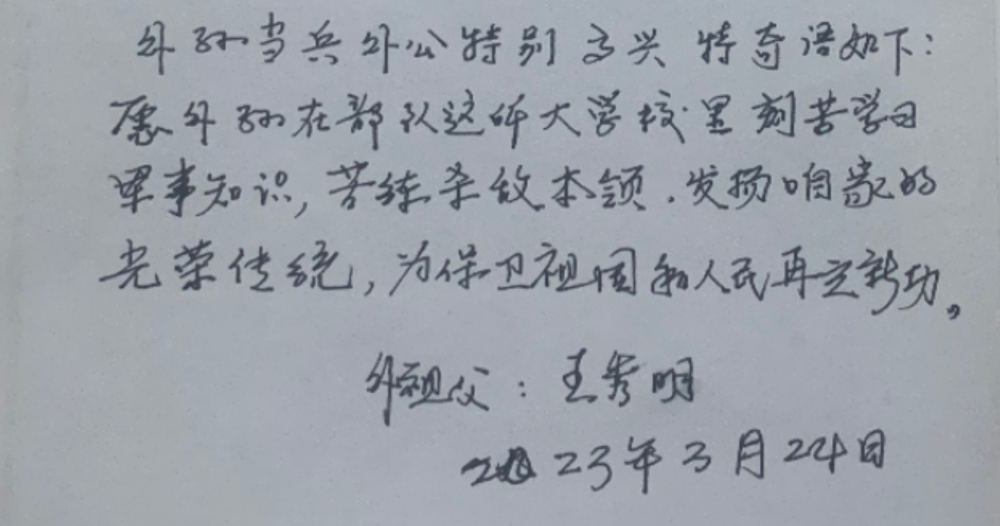 外孙当兵外公特别高兴 特寄语如下：
愿外孙在部队这所大学校里刻苦学习
军事知识，苦练杀敌本领．发扬咱家的
光荣传统，为保卫祖国和人民再立新功。
外祖父：王秀明
2023年3月24日